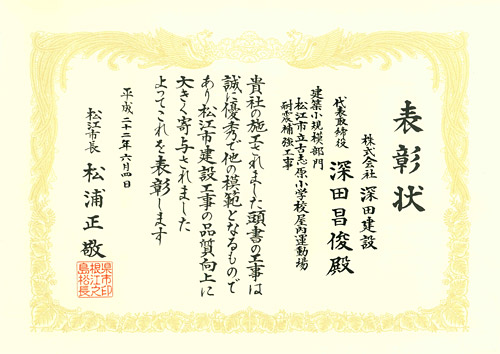 表彰状
株式会社 深田建設
代表取締役 深田昌俊殿
建築小規模部門
松江市立古志原小学校屋内運動場
耐震補強工事
貴社の施工されました頭書の工事は
誠に優秀で他の模範となるもので
あり松江市建設工事の品質向上に
大きく寄与されました
よってこれを表彰します
平成二十二年六月四日
松江市長 松浦正敬
島根県
松江市
長之印